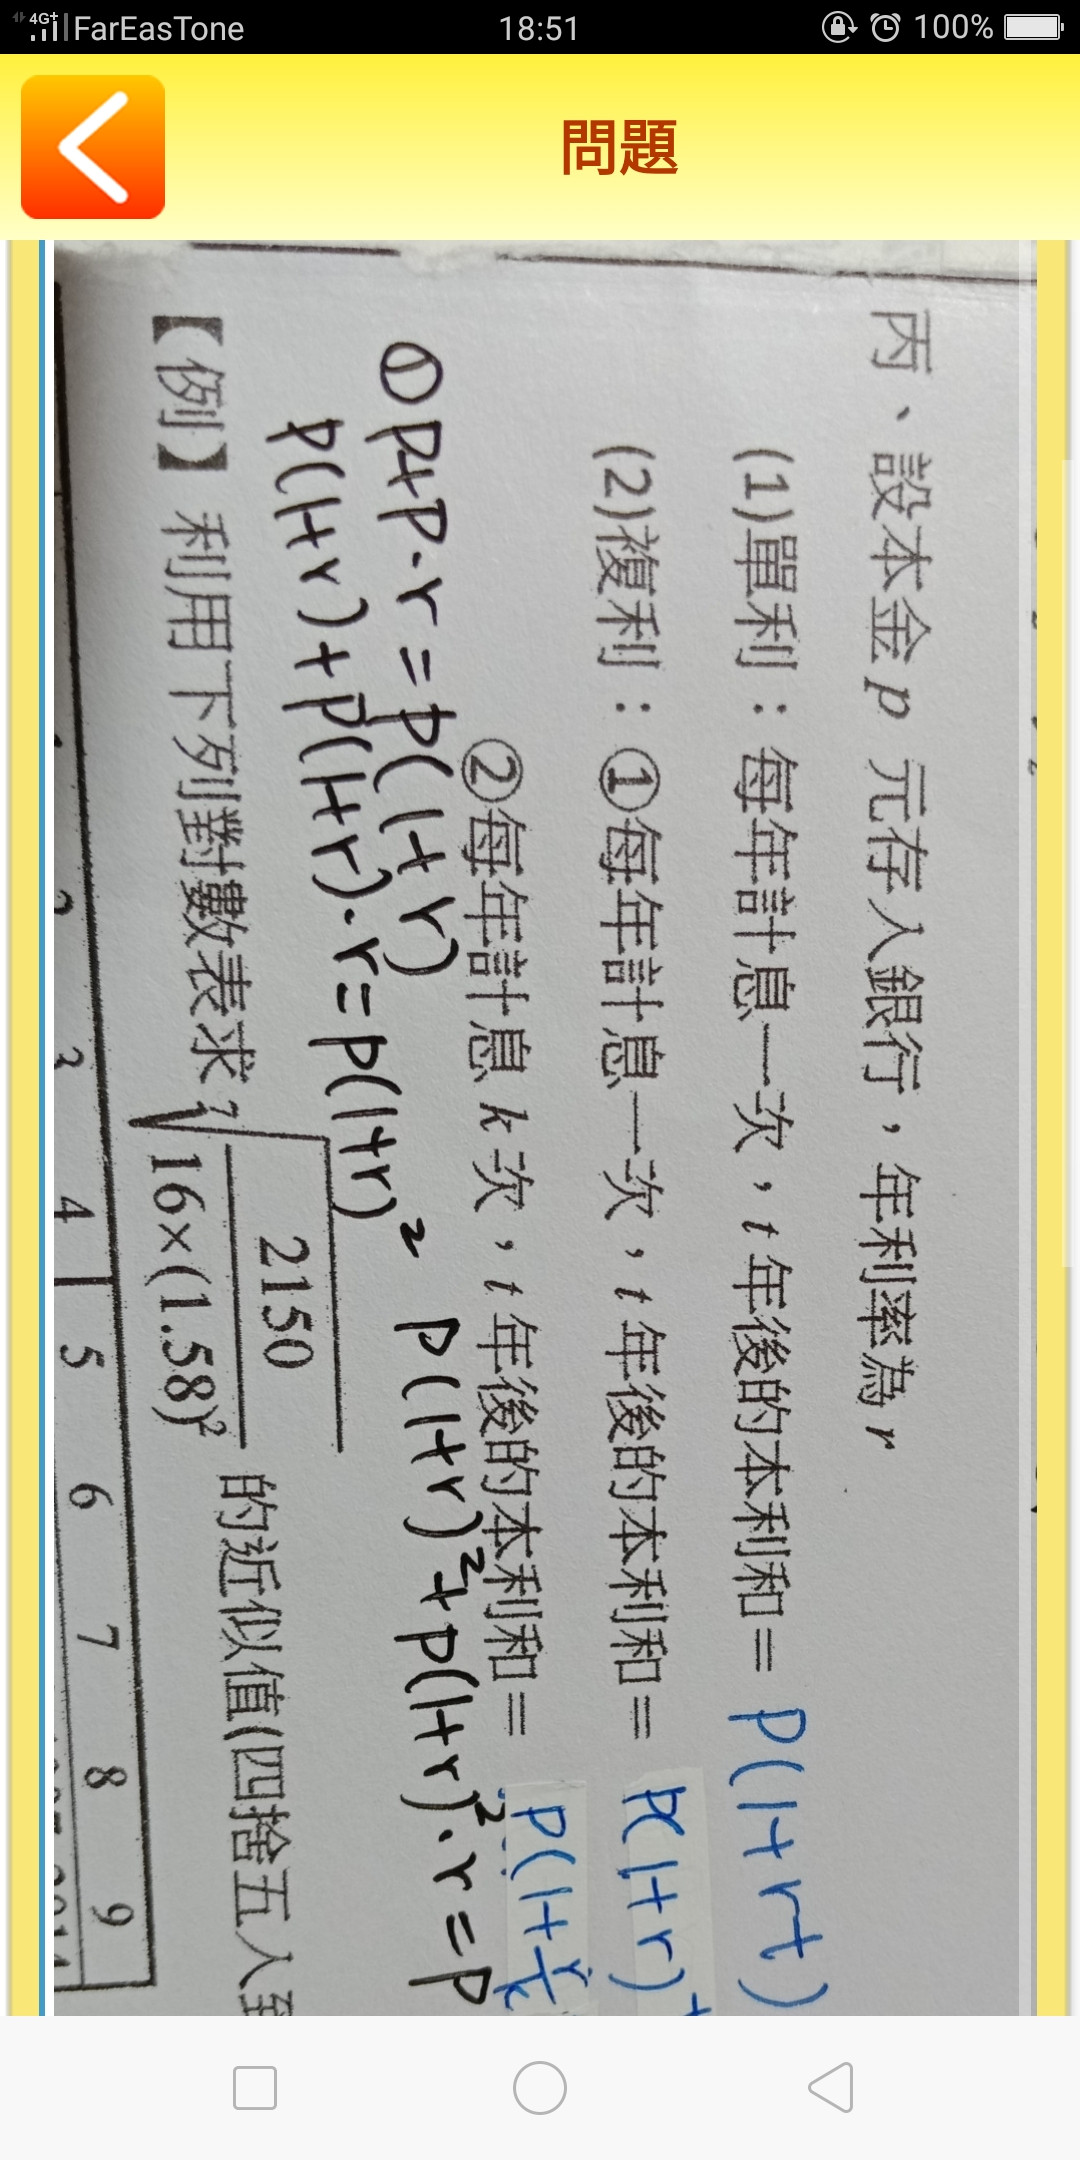 4G+ FarEasTone 18:51 100%
問題
丙、設本金 p 元存入銀行，年利率為 r
(1)單利：每年計息一次，t 年後的本利和＝ P(1+rt)
(2)複利：①每年計息一次，t 年後的本利和＝ P(1+r)
②每年計息 k 次，t 年後的本利和＝ P(1+r/k
①P+P·r=P(1+r)
P(1+r)+P(1+r)·r=P(1+r)² P(1+r)²+P(1+r)²·r=P
【例】利用下列對數表求 ⁷√(2150/16×(1.58)²) 的近似值(四捨五入至
2 3 4 5 6 7 8 9